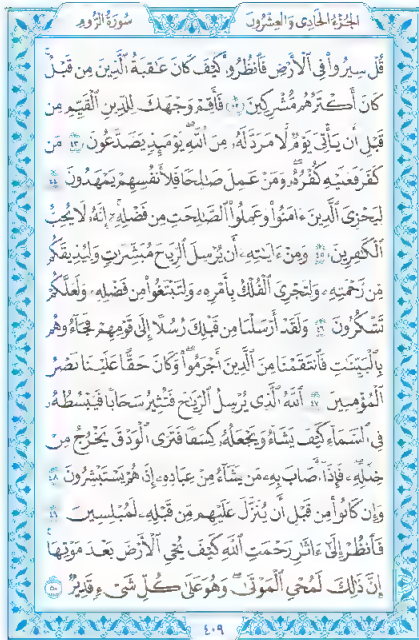 الجزء الحادي والعشرون
سورة الروم
قُلْ سِيرُوا۟ فِى ٱلْأَرْضِ فَٱنظُرُوا۟ كَيْفَ كَانَ عَـٰقِبَةُ ٱلَّذِينَ مِن قَبْلُ
كَانَ أَكْثَرُهُم مُّشْرِكِينَ ﴿٤٢﴾ فَأَقِمْ وَجْهَكَ لِلدِّينِ ٱلْقَيِّمِ مِن
قَبْلِ أَن يَأْتِىَ يَوْمٌ لَّا مَرَدَّ لَهُۥ مِنَ ٱللَّهِ يَوْمَئِذٍ يَصَّدَّعُونَ ﴿٤٣﴾ مَن
كَفَرَ فَعَلَيْهِ كُفْرُهُۥ وَمَنْ عَمِلَ صَـٰلِحًا فَلِأَنفُسِهِمْ يَمْهَدُونَ ﴿٤٤﴾
لِيَجْزِىَ ٱلَّذِينَ ءَامَنُوا۟ وَعَمِلُوا۟ ٱلصَّـٰلِحَـٰتِ مِن فَضْلِهِۦٓ إِنَّهُۥ لَا يُحِبُّ
ٱلْكَـٰفِرِينَ ﴿٤٥﴾ وَمِنْ ءَايَـٰتِهِۦٓ أَن يُرْسِلَ ٱلرِّيَاحَ مُبَشِّرَٰتٍ وَلِيُذِيقَكُم
مِّن رَّحْمَتِهِۦ وَلِتَجْرِىَ ٱلْفُلْكُ بِأَمْرِهِۦ وَلِتَبْتَغُوا۟ مِن فَضْلِهِۦ وَلَعَلَّكُمْ
تَشْكُرُونَ ﴿٤٦﴾ وَلَقَدْ أَرْسَلْنَا مِن قَبْلِكَ رُسُلًا إِلَىٰ قَوْمِهِمْ فَجَآءُوهُم
بِٱلْبَيِّنَـٰتِ فَٱنتَقَمْنَا مِنَ ٱلَّذِينَ أَجْرَمُوا۟ وَكَانَ حَقًّا عَلَيْنَا نَصْرُ
ٱلْمُؤْمِنِينَ ﴿٤٧﴾ ٱللَّهُ ٱلَّذِى يُرْسِلُ ٱلرِّيَـٰحَ فَتُثِيرُ سَحَابًا فَيَبْسُطُهُۥ
فِى ٱلسَّمَآءِ كَيْفَ يَشَآءُ وَيَجْعَلُهُۥ كِسَفًا فَتَرَى ٱلْوَدْقَ يَخْرُجُ مِنْ
خِلَـٰلِهِۦ فَإِذَآ أَصَابَ بِهِۦ مَن يَشَآءُ مِنْ عِبَادِهِۦٓ إِذَا هُمْ يَسْتَبْشِرُونَ ﴿٤٨﴾
وَإِن كَانُوا۟ مِن قَبْلِ أَن يُنَزَّلَ عَلَيْهِم مِّن قَبْلِهِۦ لَمُبْلِسِينَ ﴿٤٩﴾
فَٱنظُرْ إِلَىٰٓ ءَاثَـٰرِ رَحْمَتِ ٱللَّهِ كَيْفَ يُحْىِ ٱلْأَرْضَ بَعْدَ مَوْتِهَآ
إِنَّ ذَٰلِكَ لَمُحْىِ ٱلْمَوْتَىٰ وَهُوَ عَلَىٰ كُلِّ شَىْءٍ قَدِيرٌ ﴿٥٠﴾
٤٠٩